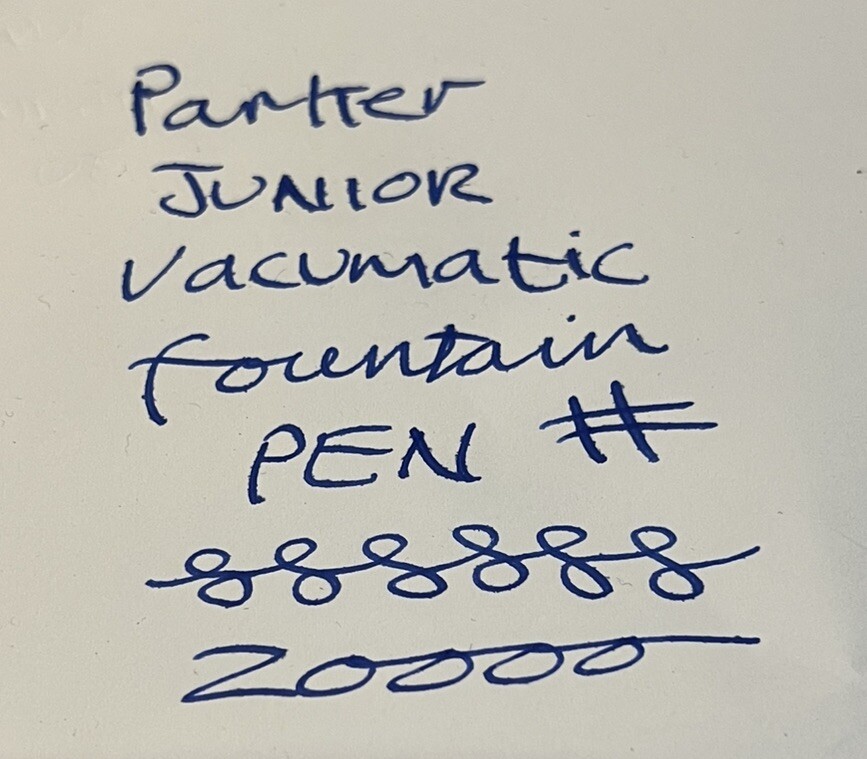 Parker
JUNIOR
Vacumatic
fountain
PEN #
20000